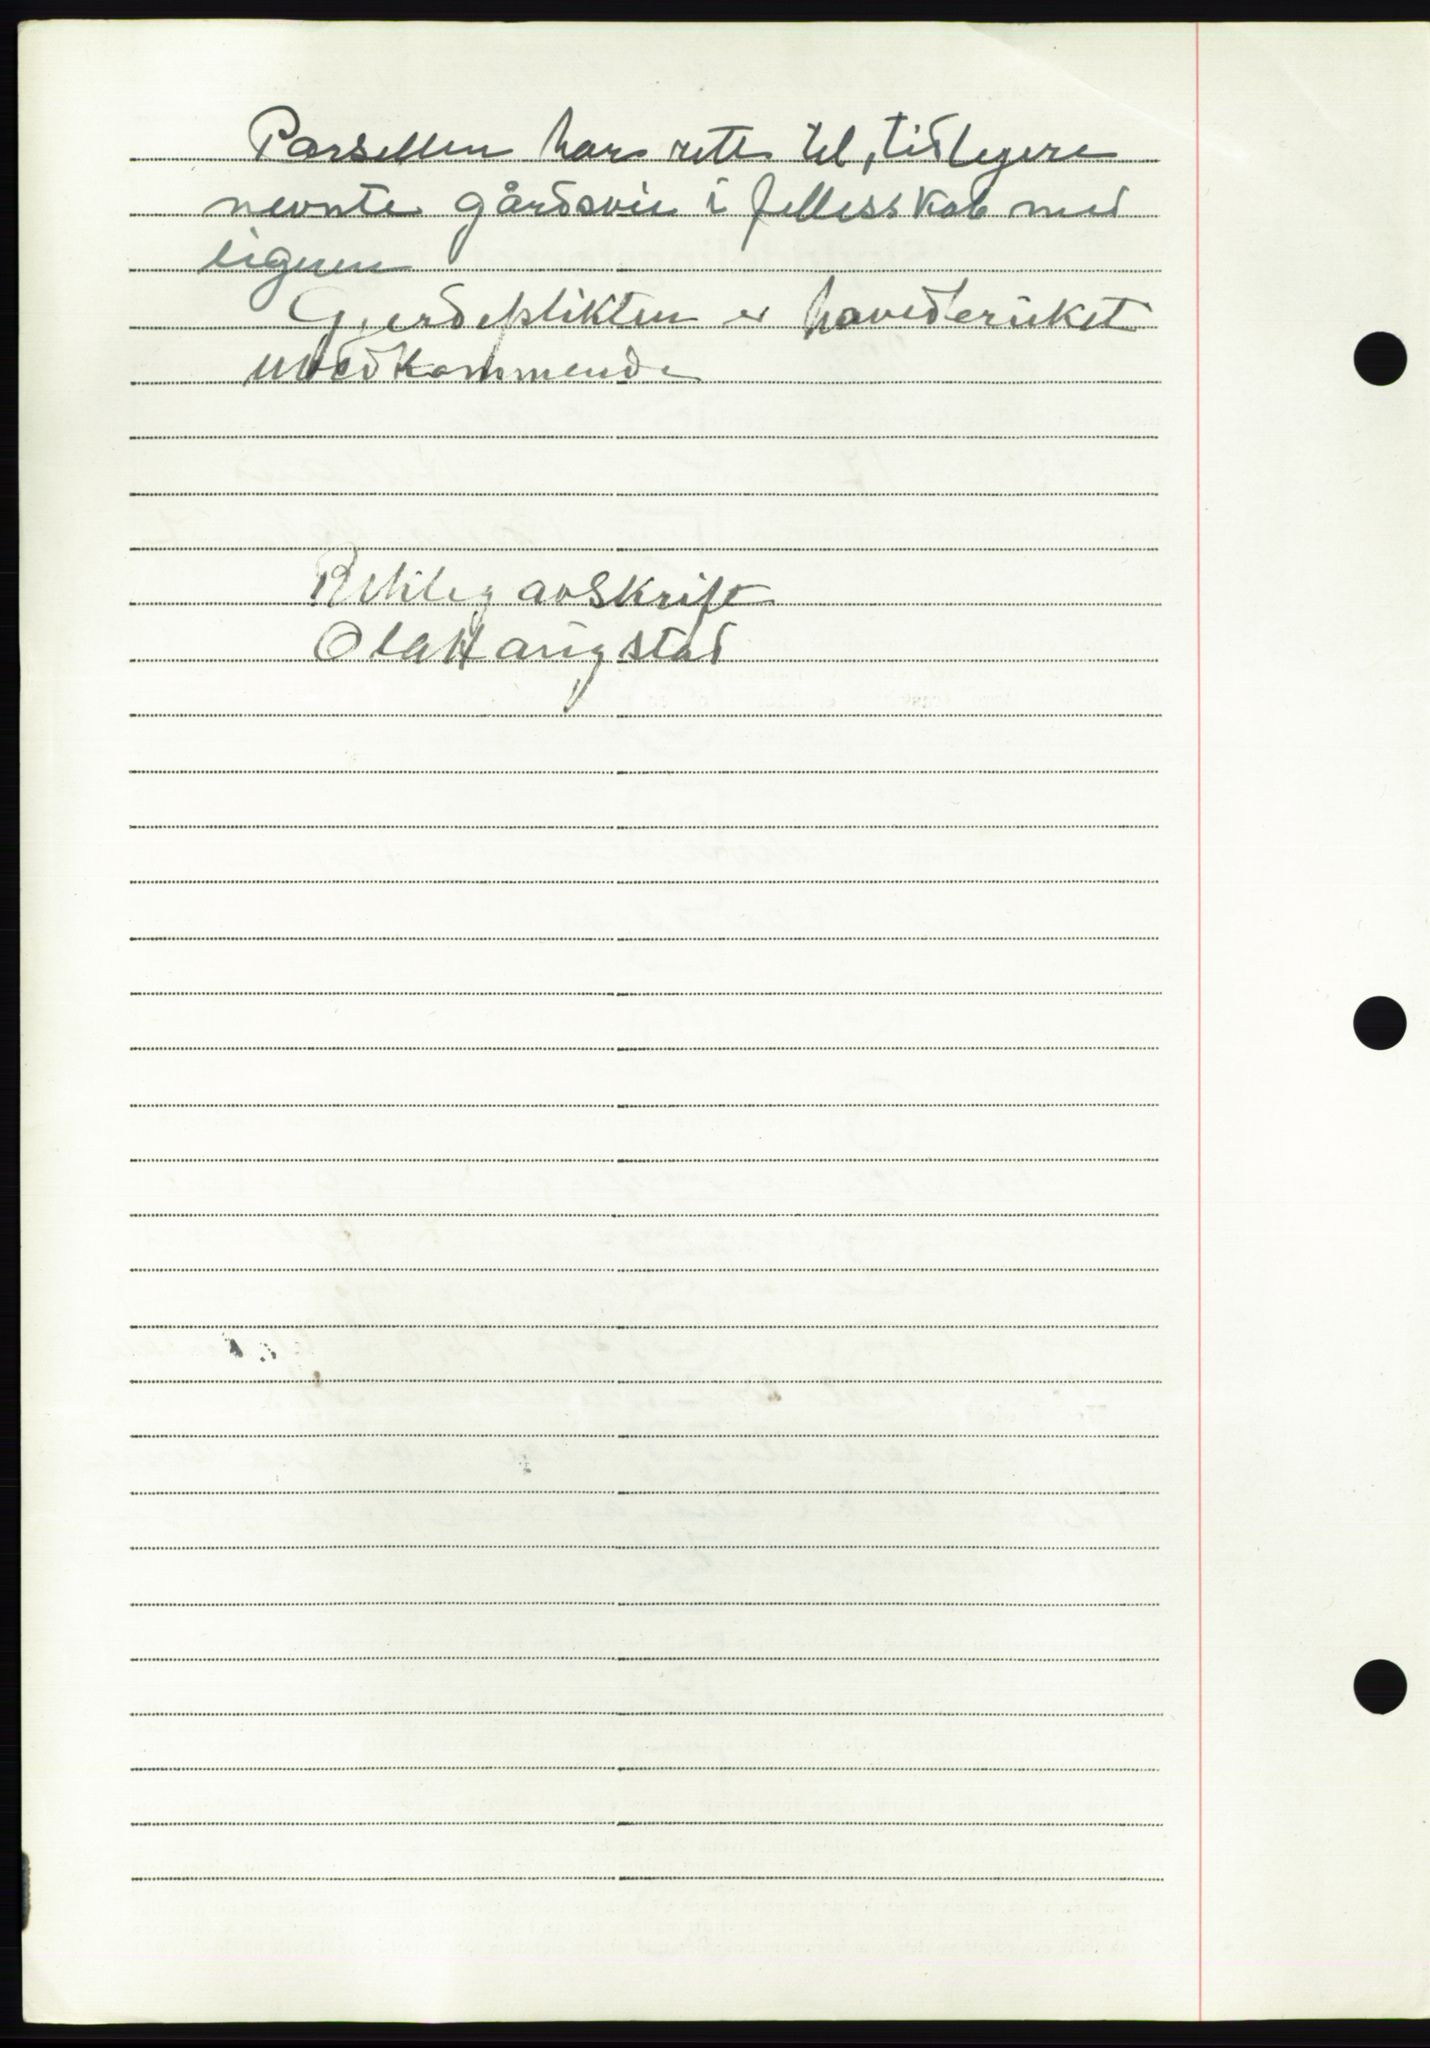 Parsellen har rett til, tidlegere
nevnte gårdsvei i fellesskab med
eigeren
Gjerdeplikten er hovedbruket
uvedkommende
Rettleg avskrift
Ola Haugstad